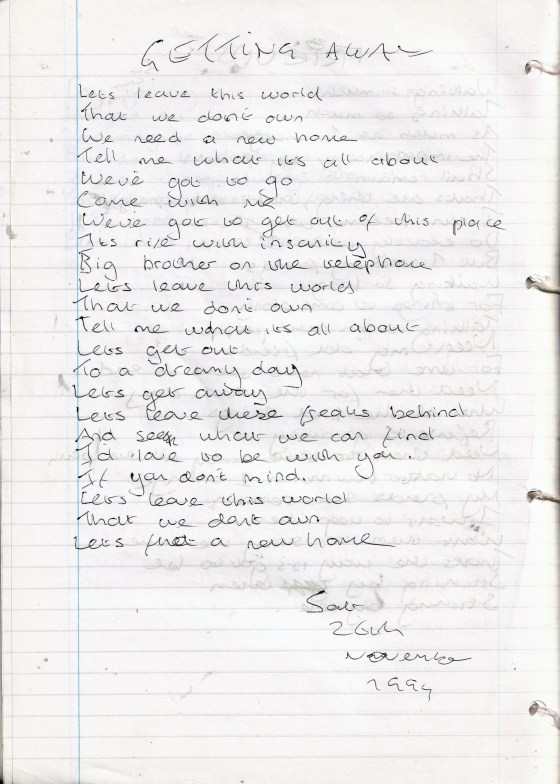 GETTING AWAY
Lets leave this world
That we dont own
We need a new home
Tell me what its all about
Weve got to go
Come with me
We've got to get out of this place
Its rife with insanity
Big brother on the telephone
Lets leave this world
That we dont own
Tell me what its all about
Lets get out
To a dreamy day
Lets get away
Lets leave these freaks behind
And see what we can find
I'd love to be with you.
If you don't mind.
Lets leave this world
That we dont own
Lets find a new home
Sat
26th
November
1994